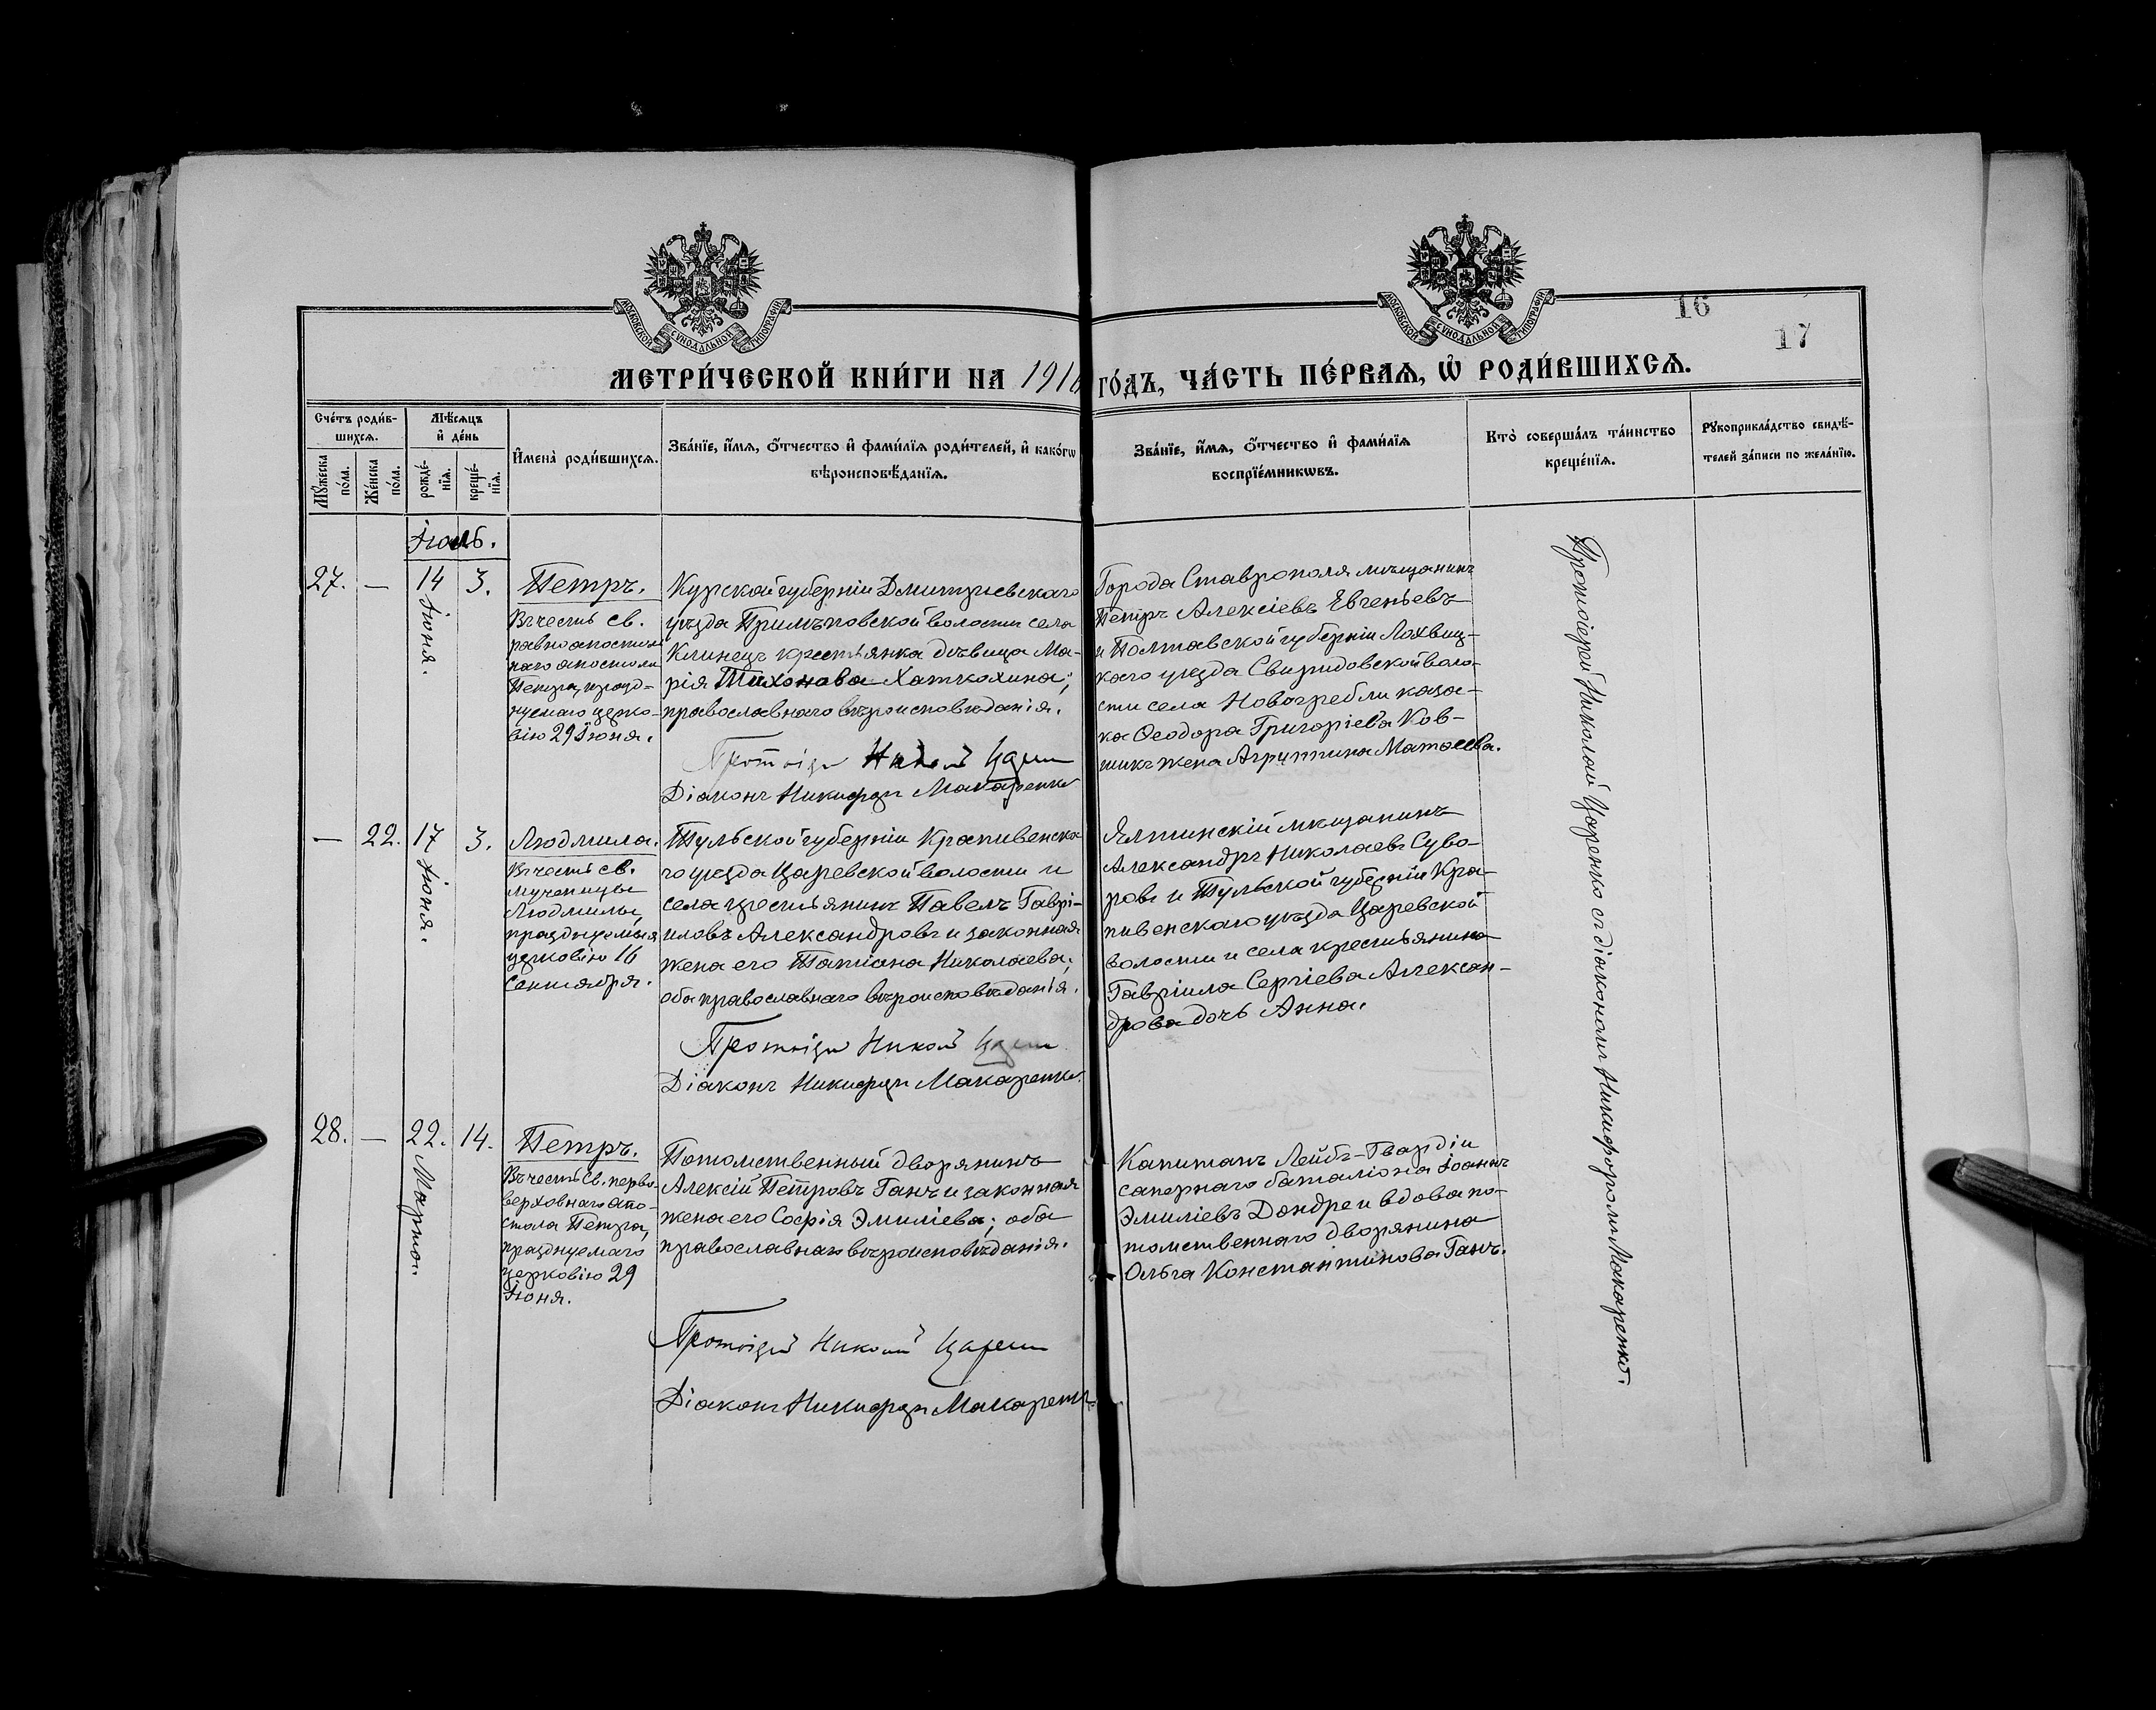 МОСКОВСКОЙ СѴНОДАЛЬНОЙ ТИПОГРАФІИ
МОСКОВСКОЙ СѴНОДАЛЬНОЙ ТИПОГРАФІИ
16
17
МЕТРИ́ЧЕСКОЙ КНИ́ГИ НА 191 ГО́ДЪ, ЧА́СТЬ ПЕ́РВАѦ, Ѡ҆ РОДИ́ВШИХСѦ.
Сче́тъ роди́в-
шихсѧ.
Мꙋ́жеска по́ла.
Же́нска по́ла.
Мѣ́сѧцъ
и҆ де́нь
рожде́-
нїѧ.
креще́-
нїѧ.
И҆мена̀ роди́вшихсѧ.
Зва́нїе, и҆́мѧ, ѻ҆́тчество и҆ фами́лїѧ роди́телей, и҆ како́гѡ
вѣроисповѣ́данїѧ.
Зва́нїе, и҆́мѧ, ѻ҆́тчество и҆ фами́лїѧ
воспрїе́мникѡвъ.
Кто̀ соверша́лъ та́инство
креще́нїѧ.
Рꙋкоприкла́дство свидѣ́-
телей за́писи по жела́нїю.
Іюль.
27. — 14 Іюня. 3.
Петръ.
Въ честь св.
равноапостоль
наго апостола
Петра, празд-
нуемаго церко-
вію 29 Іюня.
Курской губерніи Дмитріевскаго
уѣзда Села
Клинецъ крестьянка дѣвица Ма-
рія Тихонова
православнаго вѣроисповѣданія.
Протоіерей Николай Царенко
Діаконъ Никифоръ Макаренко
Города Ставрополя мѣщанинъ
Петръ Алексіевъ Евгеньевъ
и Полтавской губерніи Лохвиц-
каго уѣзда Свиридовской воло-
сти села Новогребли каза-
ка Ѳеодора Григоріева Ков-
жена Агриппина Матѳеева.
— 22. 17 Іюня. 3.
Людмила.
Въ честь св.
мученицы
Людмилы,
празднуемыя
церковію 16
Сентября.
Тульской губерніи Крапивенска
го уѣзда Царевской волости и
села крестьянинъ Павелъ Гаврі-
иловъ Александровъ и законная
жена его Татіана Николаева;
оба православнаго вѣроисповѣданія.
Протоіерей Николай Царенко
Діаконъ Никифоръ Макаренко.
Ялтинскій мѣщанинъ
Александръ Николаевъ Суво-
ровъ и Тульской губерніи Кра-
пивенскаго уѣзда Царевской
волости и села крестьянина
Гавріила Сергіева Алексан-
дрова дочь Анна.
28. — 22. Мартъ. 14.
Петръ.
Въ честь Св. перво-
верховнаго апо-
стола Петра,
празднуемаго
церковію 29
Іюня.
Потомственный дворянинъ
Алексій Петровъ Ганъ и законная
жена его Софія Эмиліева; оба
православнаго вѣроисповѣданія.
Протоіерей Николай Царенко
Діаконъ Никифоръ Макаренко
Капитанъ Лейбъ-Гвардіи
сапернаго баталіона Іоаннъ
Эмиліевъ Дандре и вдова по-
томственнаго дворянина
Ольга Константинова Ганъ.
Протоіерей Николай Царенко съ діакономъ Никифоромъ Макаренко.